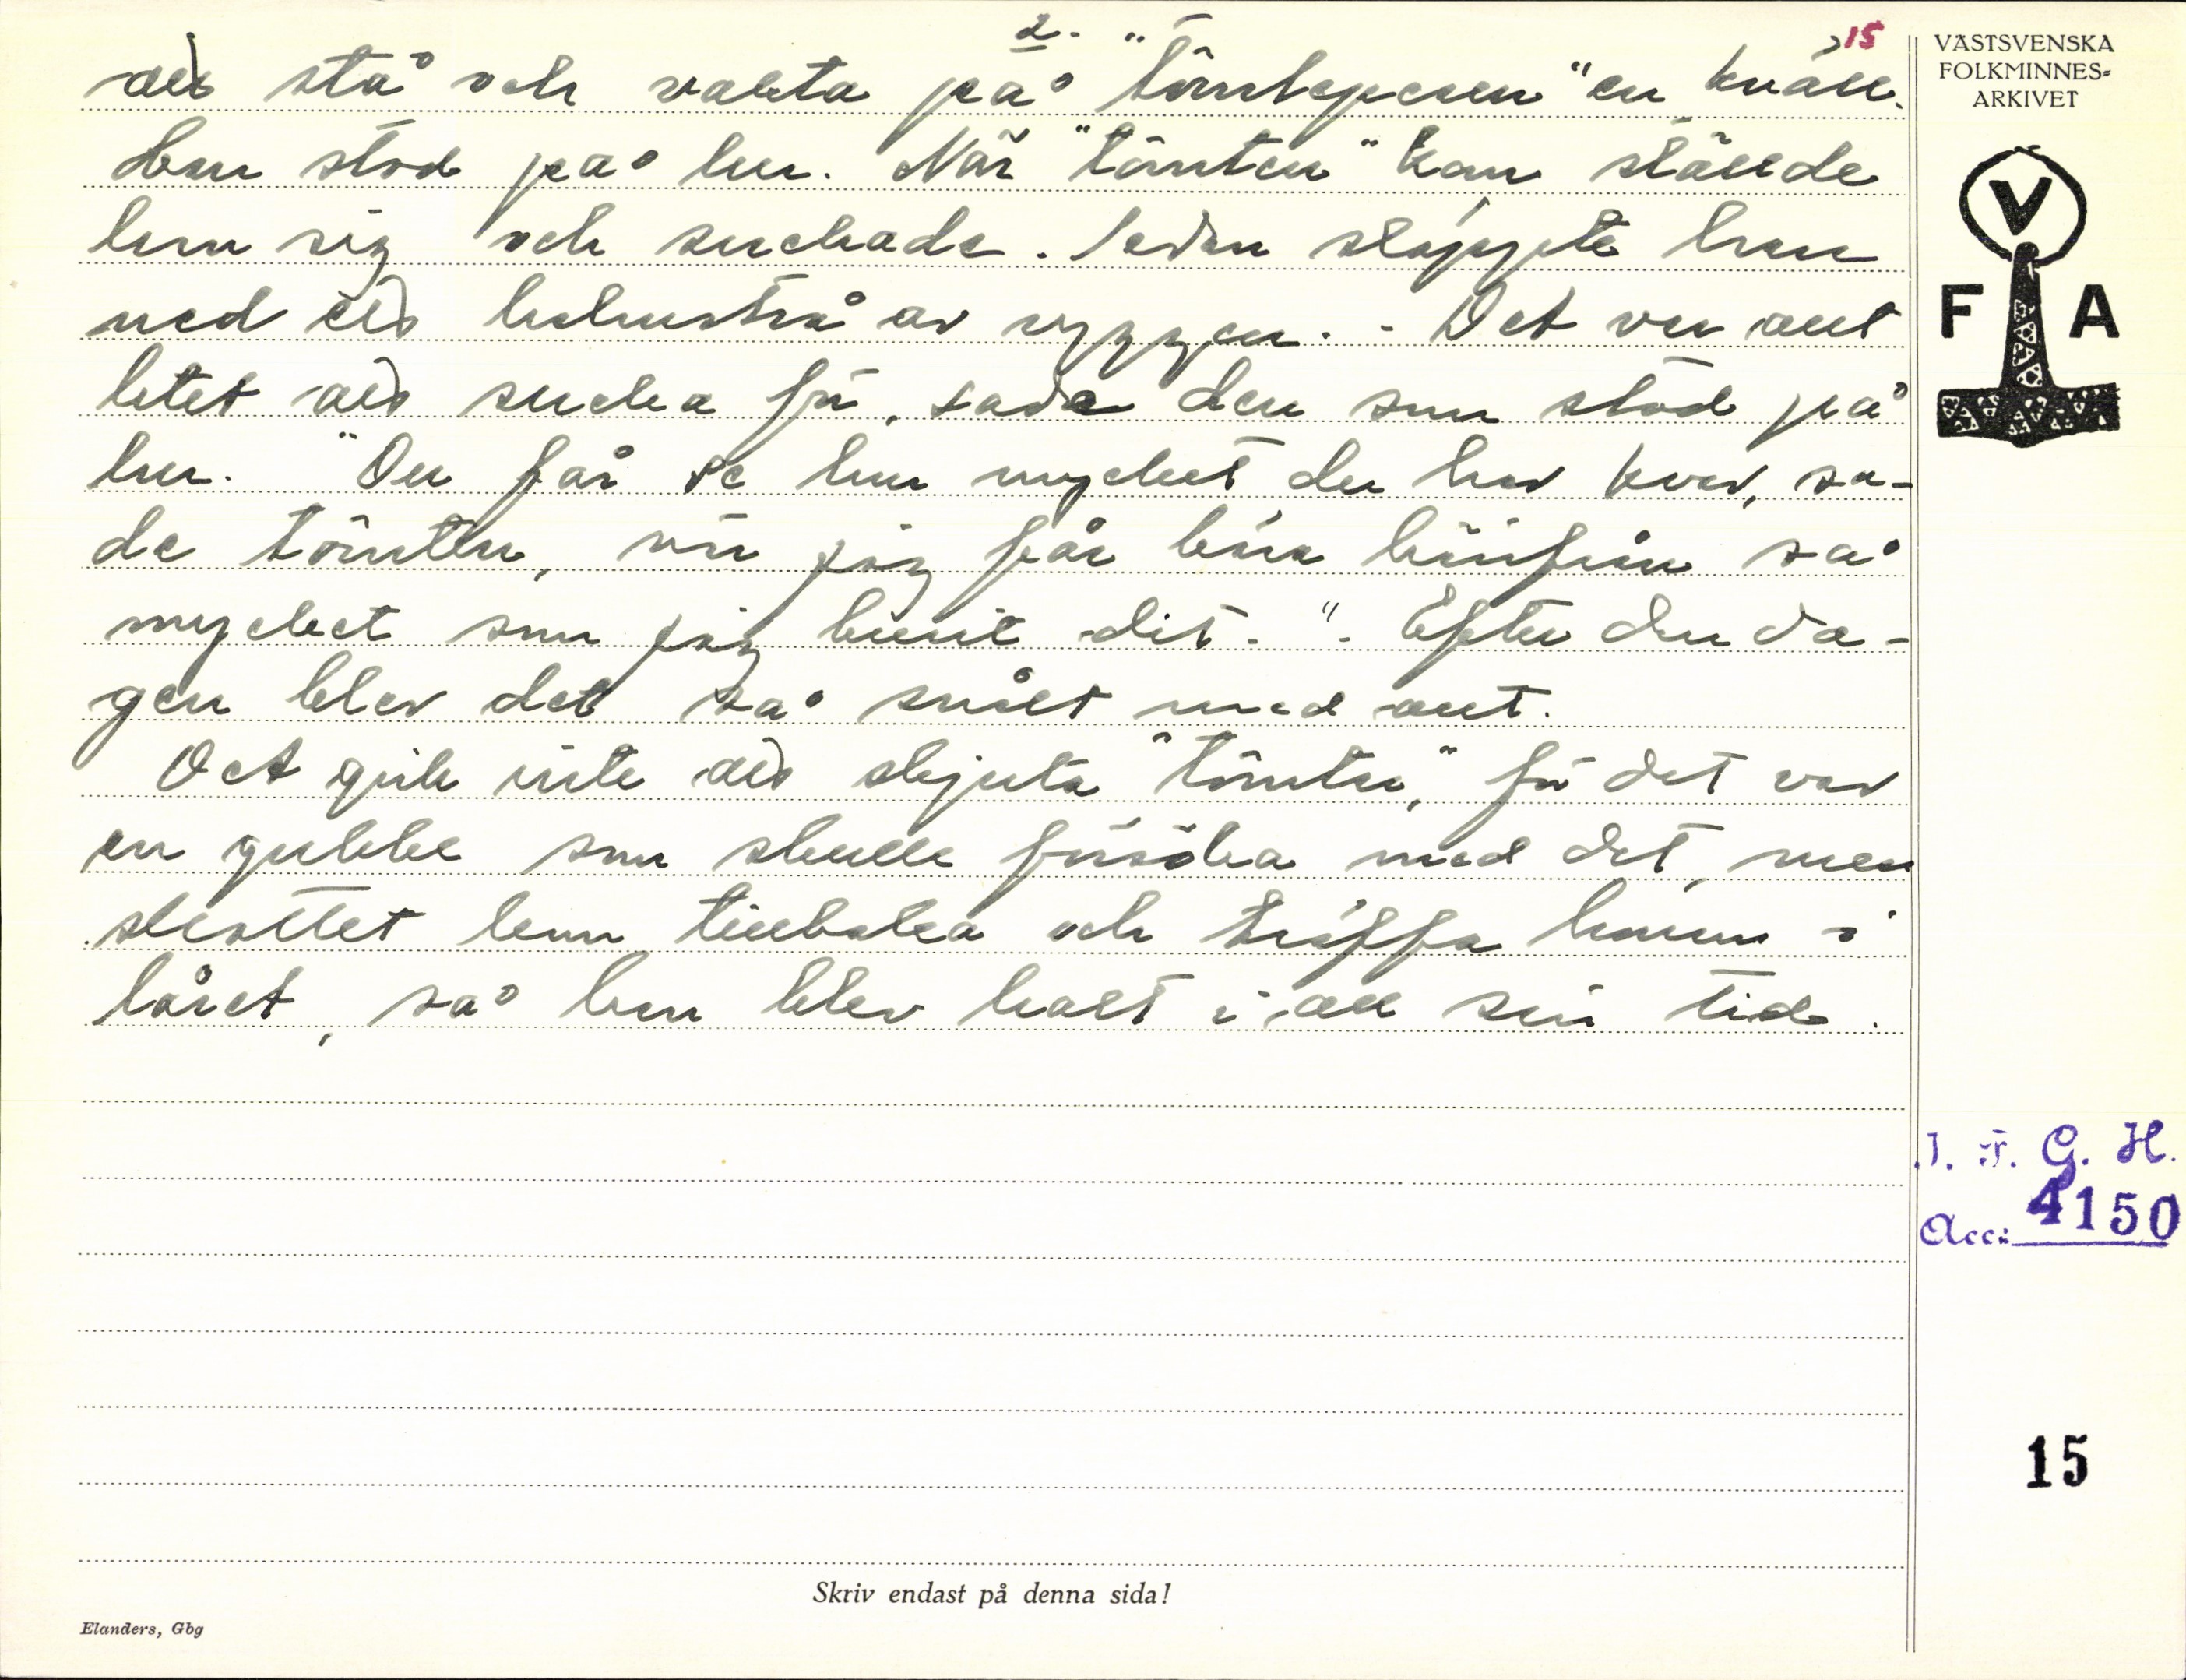 2.
15
att stå och vakta på "tömtepesen" en kväll.
Han stod på lur. När "tömten" kom ställde
han sig och suckade. Sedan släppte han
ned ett halmstrå av ryggen. - Det var allt
litet att sucka för, sade den som stod på
lur. "Du får se hur mycket du har kvar, sa-
de tömten, när jag får bära härifrån så
mycket som jag burit dit.". Efter den da-
gen blev det så smått med allt.
Det gick inte att skjuta "tömten," för det var
en gubbe som skulle försöka med det, men
skottet kom tillbaka och träffa honom i
låret, så han blev halt i all sin tid.
VÄSTSVENSKA
FOLKMINNES-
ARKIVET
V
F A
I. F. G. H.
Acc: 4150
15
Skriv endast på denna sida!
Elanders, Gbg